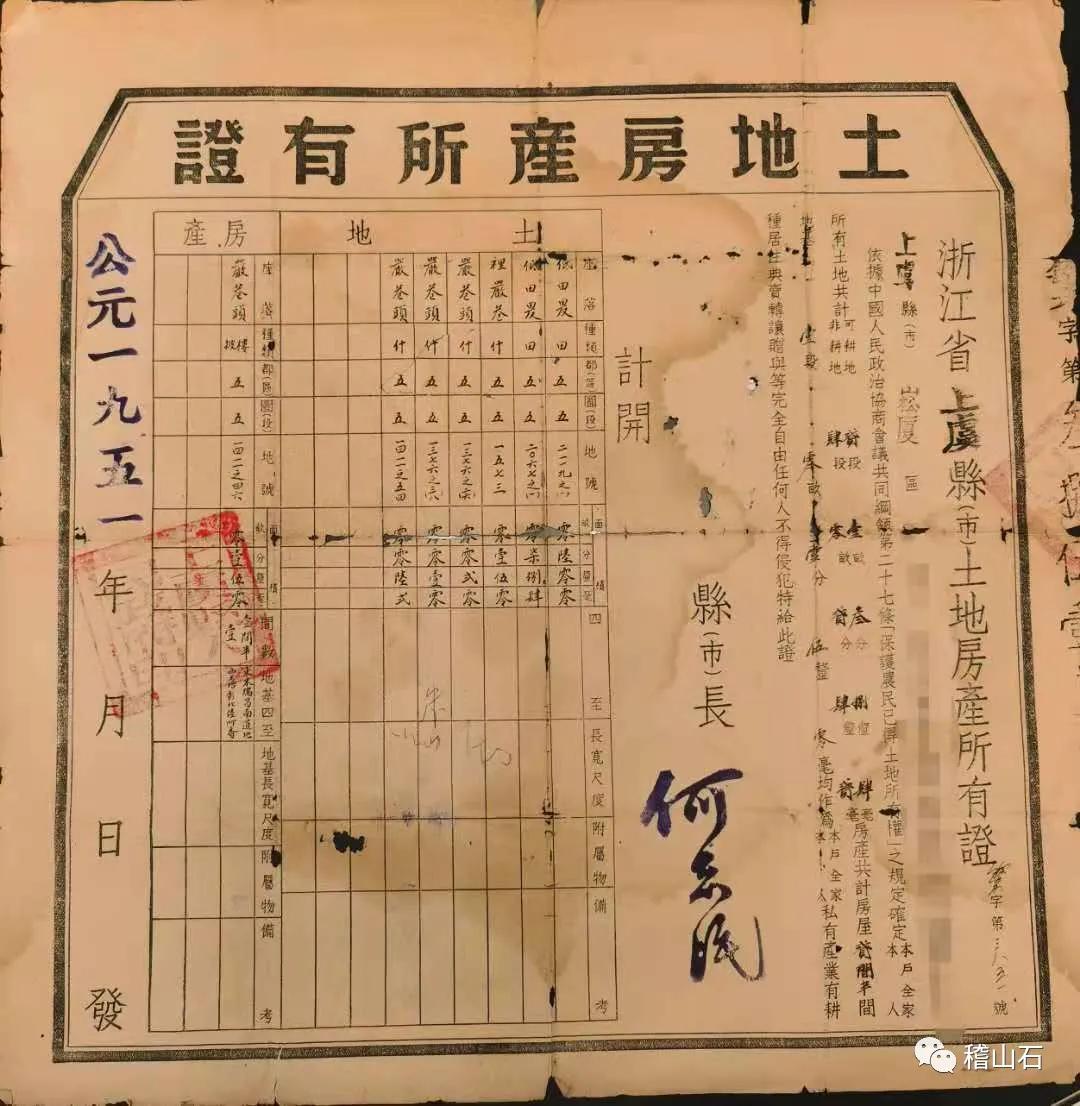 土地房產所有證
浙江省上虞縣(市)土地房產所有證
字第三八五一號
上虞縣(市)崧厦區
依據中國人民政治協商會議共同綱領第二十七條「保護農民已得土地所有權」之規定確定本戶全家本人
所有土地共計可耕地貳段壹畝叁分捌釐肆毫房產共計房屋貳間半間
非耕地肆段零畝貳分肆釐貳毫
地基壹段零畝壹分伍釐零毫均作為本戶全家本人私有產業有耕
種居住典賣轉讓贈與等完全自由任何人不得侵犯特給此證
計開
縣(市)長
何志民
土地
座落 種類 都(區) 圖(段) 地號 面積 畝 分 釐 毫 四至 長寬尺度 附屬物 備考
低田畈 田 五 五 二一一九之 零陸零零
低田畈 田 五 五 二〇六七之 零柒捌肆
裡嚴巷 什 五 五 一五七三 零壹伍零
嚴巷頭 什 五 五 一三七六之 零零弍零
嚴巷頭 什 五 五 一三七六之 零零壹零
嚴巷頭 什 五 五 一四二之五四 零零陸弍
房產
座落 種類 都(區) 圖(段) 地號 面積 畝 分 釐 毫 間數 地基四至 地基長寬尺度 附屬物 備考
嚴巷頭 樓披 五 五 一四二之四六 零壹伍零
公元一九五一年月日發
稽山石